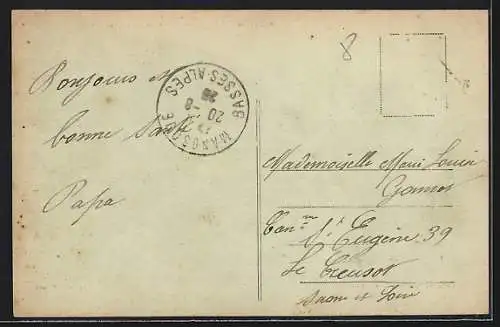 8
Bonjours et
bonne Santé
Papa
MANOSQUE
BASSES-ALPES
20 -8
26
Mademoiselle Marie Louise
St Eugène 39
Le Creusot
Saone et Loire